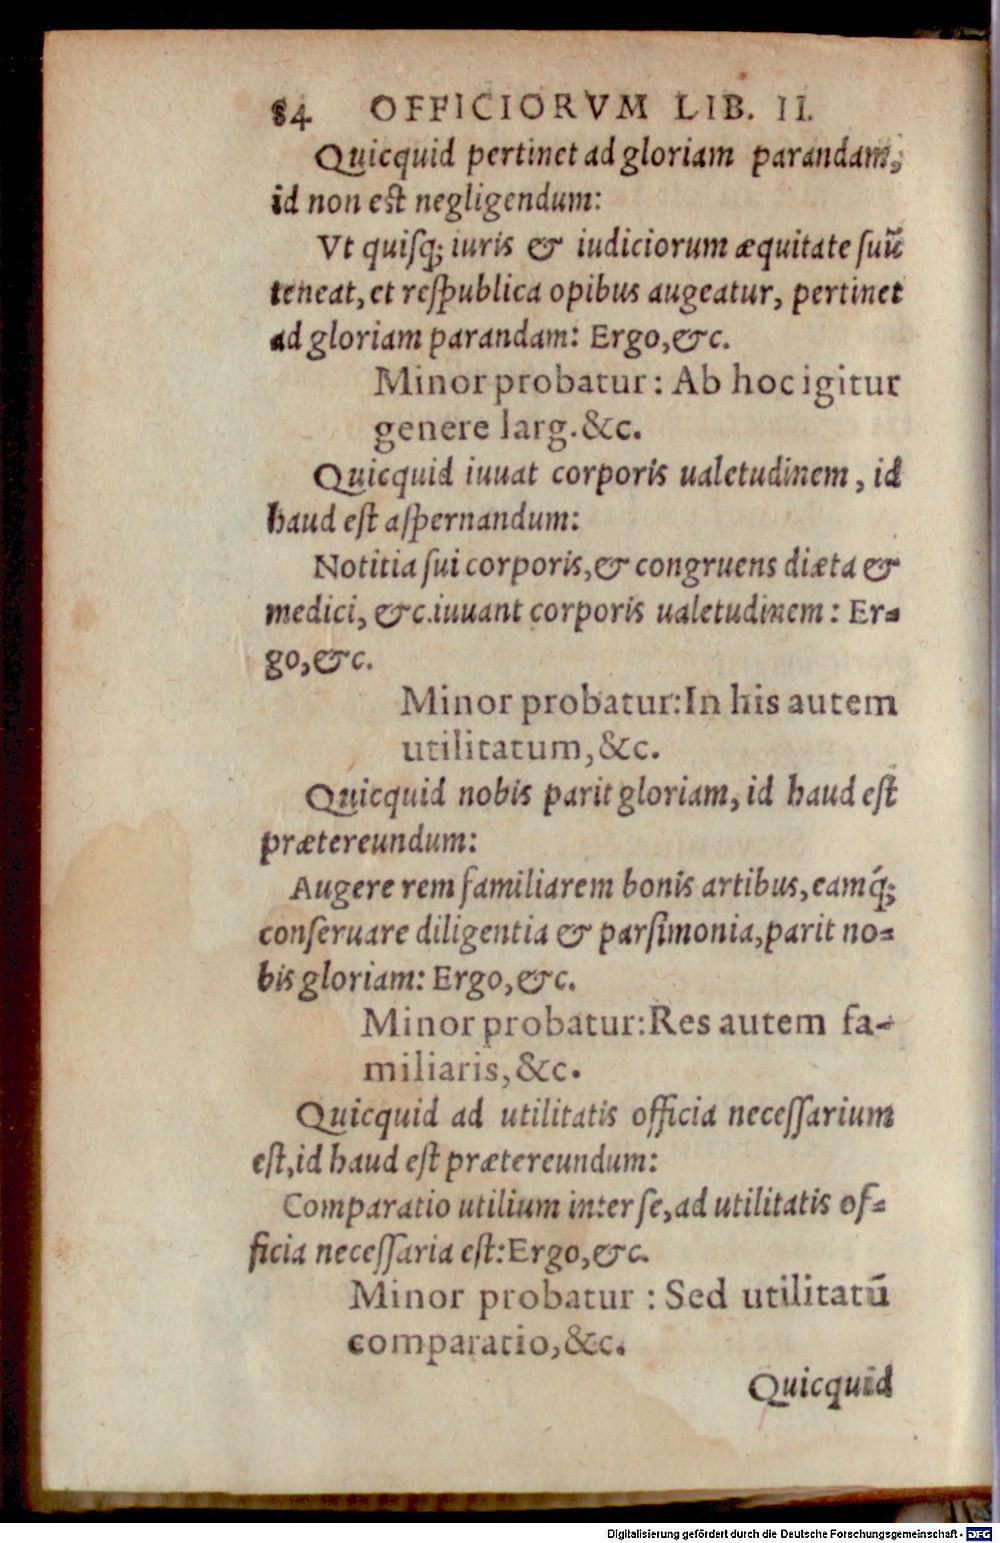 84 OFFICIORVM LIB. II.
Quicquid pertinet ad gloriam parandam,
id non est negligendum:
Vt quiſq; iuris & iudiciorum æquitate ſuū
teneat, et reſpublica opibus augeatur, pertinet
ad gloriam parandam: Ergo, &c.
Minor probatur: Ab hoc igitur
genere larg. &c.
Quicquid iuuat corporis ualetudinem, id
haud eſt aſpernandum:
Notitia ſui corporis, & congruens diæta &
medici, &c. iuuant corporis ualetudinem: Er-
go, &c.
Minor probatur: In his autem
utilitatum, &c.
Quicquid nobis parit gloriam, id haud eſt
prætereundum:
Augere rem familiarem bonis artibus, eamq́;
conſeruare diligentia & parſimonia, parit no-
bis gloriam: Ergo, &c.
Minor probatur: Res autem fa-
miliaris, &c.
Quicquid ad utilitatis officia neceſſarium
eſt, id haud eſt prætereundum:
Comparatio utilium inter ſe, ad utilitatis of-
ficia neceſſaria eſt: Ergo, &c.
Minor probatur: Sed utilitatū
comparatio, &c.
Quicquid
Digitalisierung gefördert durch die Deutsche Forschungsgemeinschaft - DFG